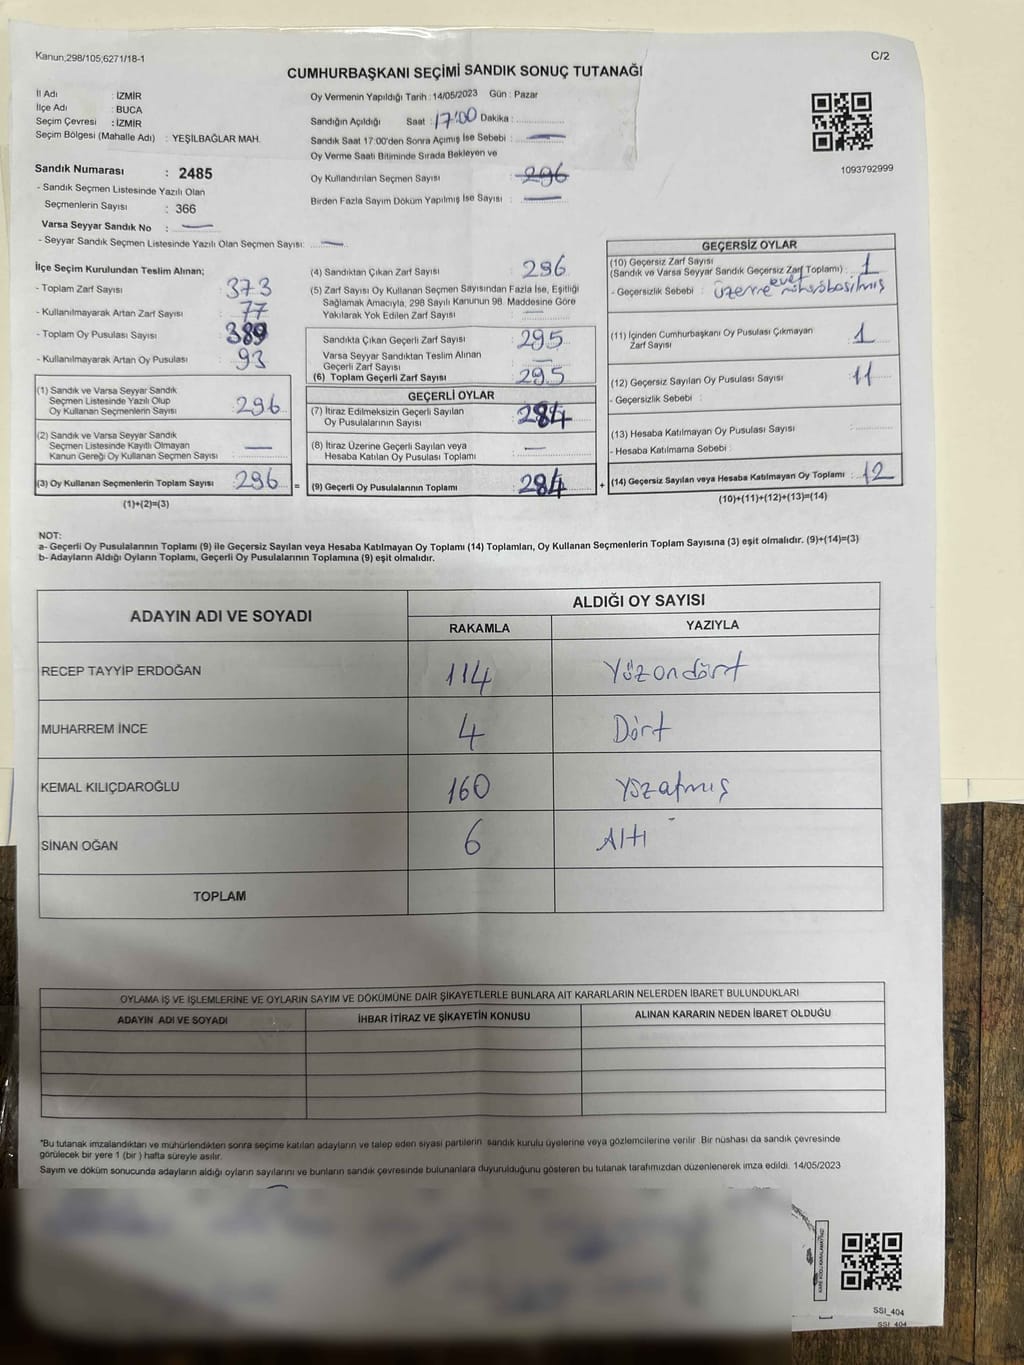 Kanun;298/105;6271/18-1
C/2
CUMHURBAŞKANI SEÇİMİ SANDIK SONUÇ TUTANAĞI
İl Adı : İZMİR
İlçe Adı : BUCA
Seçim Çevresi : İZMİR
Seçim Bölgesi (Mahalle Adı) : YEŞİLBAĞLAR MAH.
Oy Vermenin Yapıldığı Tarih : 14/05/2023 Gün : Pazar
Sandığın Açıldığı Saat : 17:00 Dakika :
Sandık Saat 17:00'den Sonra Açımış İse Sebebi : —
Oy Verme Saati Bitiminde Sırada Bekleyen ve
Oy Kullandırılan Seçmen Sayısı : 296
Birden Fazla Sayım Döküm Yapılmış İse Sayısı : —
1093792999
Sandık Numarası : 2485
- Sandık Seçmen Listesinde Yazılı Olan
Seçmenlerin Sayısı : 366
Varsa Seyyar Sandık No : —
- Seyyar Sandık Seçmen Listesinde Yazılı Olan Seçmen Sayısı: —
İlçe Seçim Kurulundan Teslim Alınan;
- Toplam Zarf Sayısı : 373
- Kullanılmayarak Artan Zarf Sayısı : 77
- Toplam Oy Pusulası Sayısı : 389
- Kullanılmayarak Artan Oy Pusulası : 93
(1) Sandık ve Varsa Seyyar Sandık
Seçmen Listesinde Yazılı Olup
Oy Kullanan Seçmenlerin Sayısı : 296
(2) Sandık ve Varsa Seyyar Sandık
Seçmen Listesinde Kayıtlı Olmayan
Kanun Gereği Oy Kullanan Seçmen Sayısı : —
(3) Oy Kullanan Seçmenlerin Toplam Sayısı : 296 =
(1)+(2)=(3)
(4) Sandıktan Çıkan Zarf Sayısı : 296
(5) Zarf Sayısı Oy Kullanan Seçmen Sayısından Fazla İse, Eşitliği
Sağlamak Amacıyla, 298 Sayılı Kanunun 98. Maddesine Göre
Yakılarak Yok Edilen Zarf Sayısı : —
Sandıkta Çıkan Geçerli Zarf Sayısı : 295
Varsa Seyyar Sandıktan Teslim Alınan
Geçerli Zarf Sayısı : —
(6) Toplam Geçerli Zarf Sayısı : 295
GEÇERLİ OYLAR
(7) İtiraz Edilmeksizin Geçerli Sayılan
Oy Pusulalarının Sayısı : 284
(8) İtiraz Üzerine Geçerli Sayılan veya
Hesaba Katılan Oy Pusulası Toplamı : —
(9) Geçerli Oy Pusulalarının Toplamı : 284 +
GEÇERSİZ OYLAR
(10) Geçersiz Zarf Sayısı
(Sandık ve Varsa Seyyar Sandık Geçersiz Zarf Toplamı) : 1
- Geçersizlik Sebebi : üzerine evet mührü basılmış
(11) İçinden Cumhurbaşkanı Oy Pusulası Çıkmayan
Zarf Sayısı : 1
(12) Geçersiz Sayılan Oy Pusulası Sayısı : 11
- Geçersizlik Sebebi :
(13) Hesaba Katılmayan Oy Pusulası Sayısı :
- Hesaba Katılmama Sebebi :
(14) Geçersiz Sayılan veya Hesaba Katılmayan Oy Toplamı : 12
(10)+(11)+(12)+(13)=(14)
NOT:
a- Geçerli Oy Pusulalarının Toplamı (9) ile Geçersiz Sayılan veya Hesaba Katılmayan Oy Toplamı (14) Toplamları, Oy Kullanan Seçmenlerin Toplam Sayısına (3) eşit olmalıdır. (9)+(14)=(3)
b- Adayların Aldığı Oyların Toplamı, Geçerli Oy Pusulalarının Toplamına (9) eşit olmalıdır.
ADAYIN ADI VE SOYADI
ALDIĞI OY SAYISI
RAKAMLA YAZIYLA
RECEP TAYYİP ERDOĞAN 114 Yüzondört
MUHARREM İNCE 4 Dört
KEMAL KILIÇDAROĞLU 160 Yüzatmış
SİNAN OĞAN 6 Altı
TOPLAM
OYLAMA İŞ VE İŞLEMLERİNE VE OYLARIN SAYIM VE DÖKÜMÜNE DAİR ŞİKAYETLERLE BUNLARA AİT KARARLARIN NELERDEN İBARET BULUNDUKLARI
ADAYIN ADI VE SOYADI İHBAR İTİRAZ VE ŞİKAYETİN KONUSU ALINAN KARARIN NEDEN İBARET OLDUĞU
*Bu tutanak imzalandıktan ve mühürlendikten sonra seçime katılan adayların ve talep eden siyasi partilerin sandık kurulu üyelerine veya gözlemcilerine verilir. Bir nüshası da sandık çevresinde
görülecek bir yere 1 (bir ) hafta süreyle asılır.
Sayım ve döküm sonucunda adayların aldığı oyların sayılarını ve bunların sandık çevresinde bulunanlara duyurulduğunu gösteren bu tutanak tarafımızdan düzenlenerek imza edildi. 14/05/2023
SSI_404
SSI_404